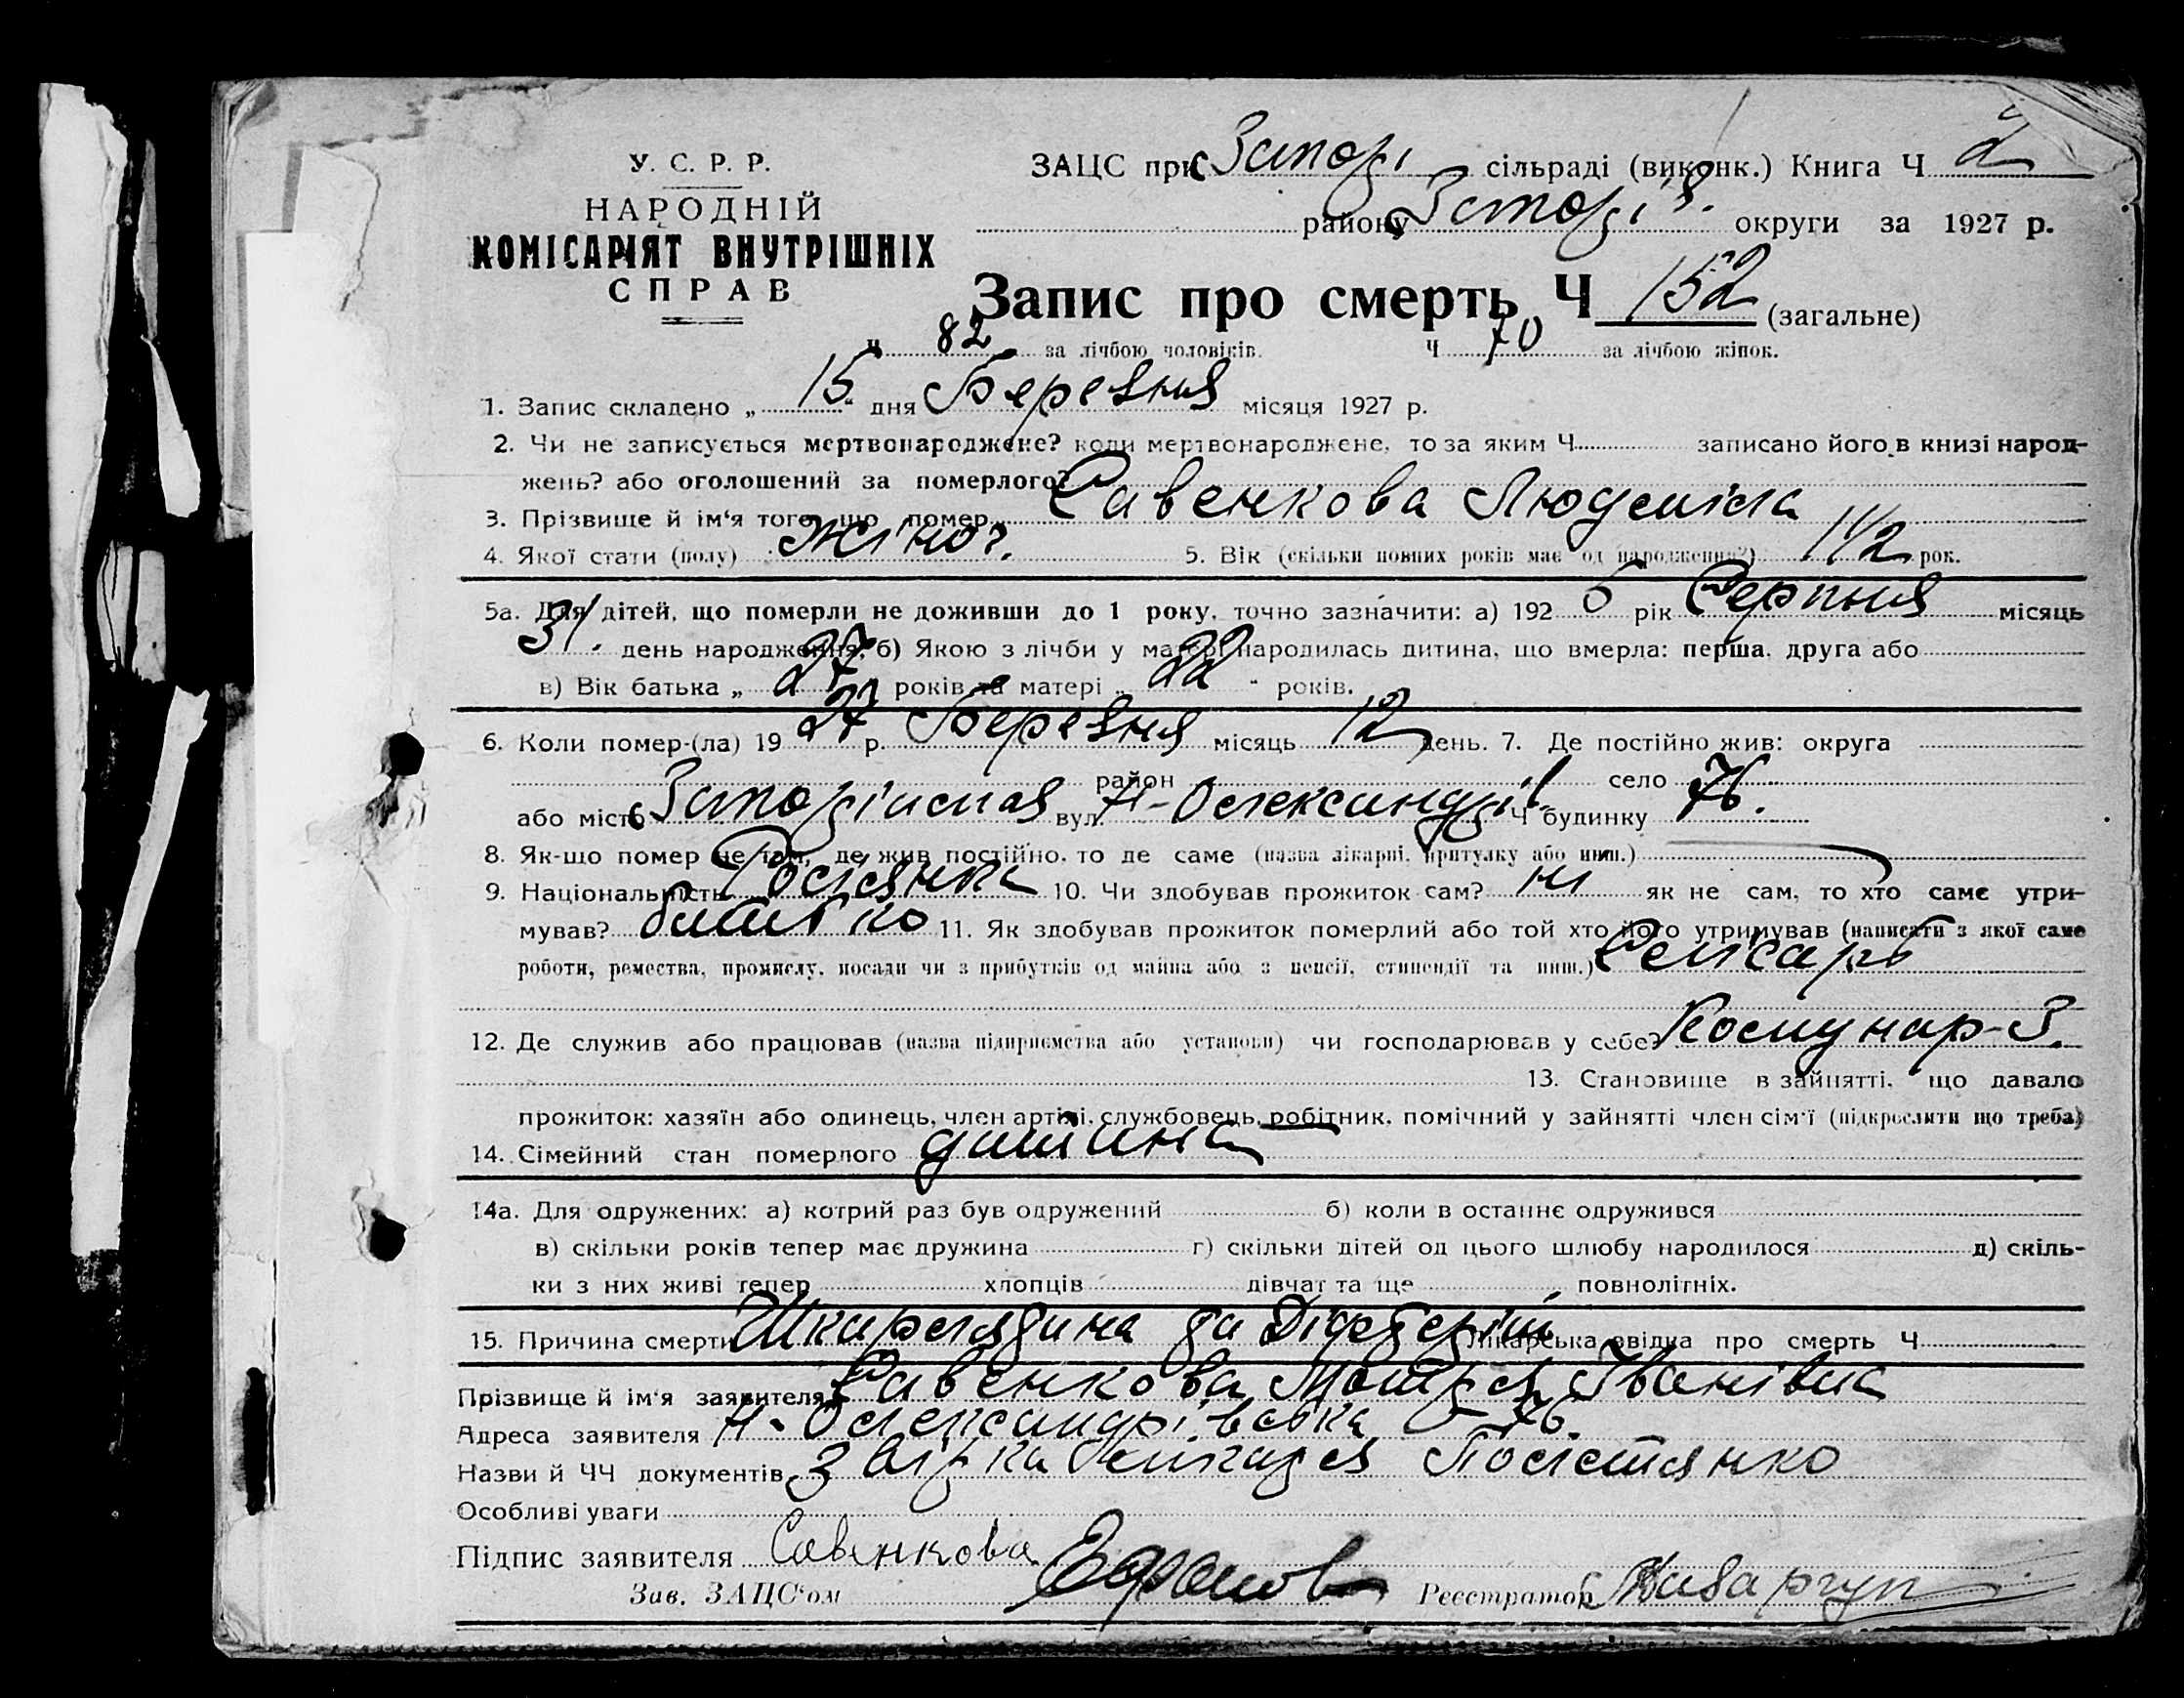 У. С. Р. Р.
НАРОДНІЙ
КОМІСАРІЯТ ВНУТРІШНІХ
СПРАВ
ЗАЦС при Запорі сільраді (виконк.) Книга Ч 2
району округи за 1927 р.
Запис про смерть Ч 152 (загальне)
Ч 82 за лічбою чоловіків. Ч 70 за лічбою жінок.
1. Запис складено „ 15 “ дня Березня місяця 1927 р.
2. Чи не записується мертвонароджене? коли мертвонароджене, то за яким Ч записано його в книзі народ-
жень? або оголошений за померлого?
3. Прізвище й ім'я того, що помер Савенкова Людміла
4. Якої стати (полу) жіноч. 5. Вік (скільки повних років має од народження?) 1 1/2 рок.
5а. Для дітей, що померли не доживши до 1 року, точно зазначити: а) 192 рік Серпня місяць
31. день народження, б) Якою з лічби у матері народилась дитина, що вмерла: перша, друга або
в) Вік батька „ 27 років та матері „ 22 “ років.
6. Коли помер-(ла) 19 27 р. Березня місяць 12 день. 7. Де постійно жив: округа
район село
або місто вул. Н-Олександрі Ч будинку 76.
8. Як-що помер не там, де жив постійно, то де саме (назва лікарні, притулку або инш.)
9. Національність Росіянка 10. Чи здобував прожиток сам? ні як не сам, то хто саме утри-
мував? батько 11. Як здобував прожиток померлий або той хто його утримував (написати з якої саме
роботи, ремества, промислу, посади чи з прибутків од майна або з пенсії, стипендії та инш.) Слюсарь
12. Де служив або працював (назва підприємства або установи) чи господарював у себе? Комунар-З.
13. Становище в зайнятті, що давало
прожиток: хазяїн або одинець, член артілі, службовець, робітник, помічний у зайнятті член сім'ї (підкреслити що треба)
14. Сімейний стан померлого дитина
14а. Для одружених: а) котрий раз був одружений б) коли в останнє одружився
в) скільки років тепер має дружина г) скільки дітей од цього шлюбу народилося д) скіль-
ки з них живі тепер хлопців дівчат та ще повнолітніх.
15. Причина смерти Шкарлядина да Діфтерія Лікарська звідка про смерть Ч
Прізвище й ім'я заявителя Савенкова Мотря Іванівна
Адреса заявителя Н-Олександрівська 76.
Назви й ЧЧ документів Звідка Лікаря
Особливі уваги
Підпис заявителя Савенкова
Зав. ЗАЦС'ом Реєстратор